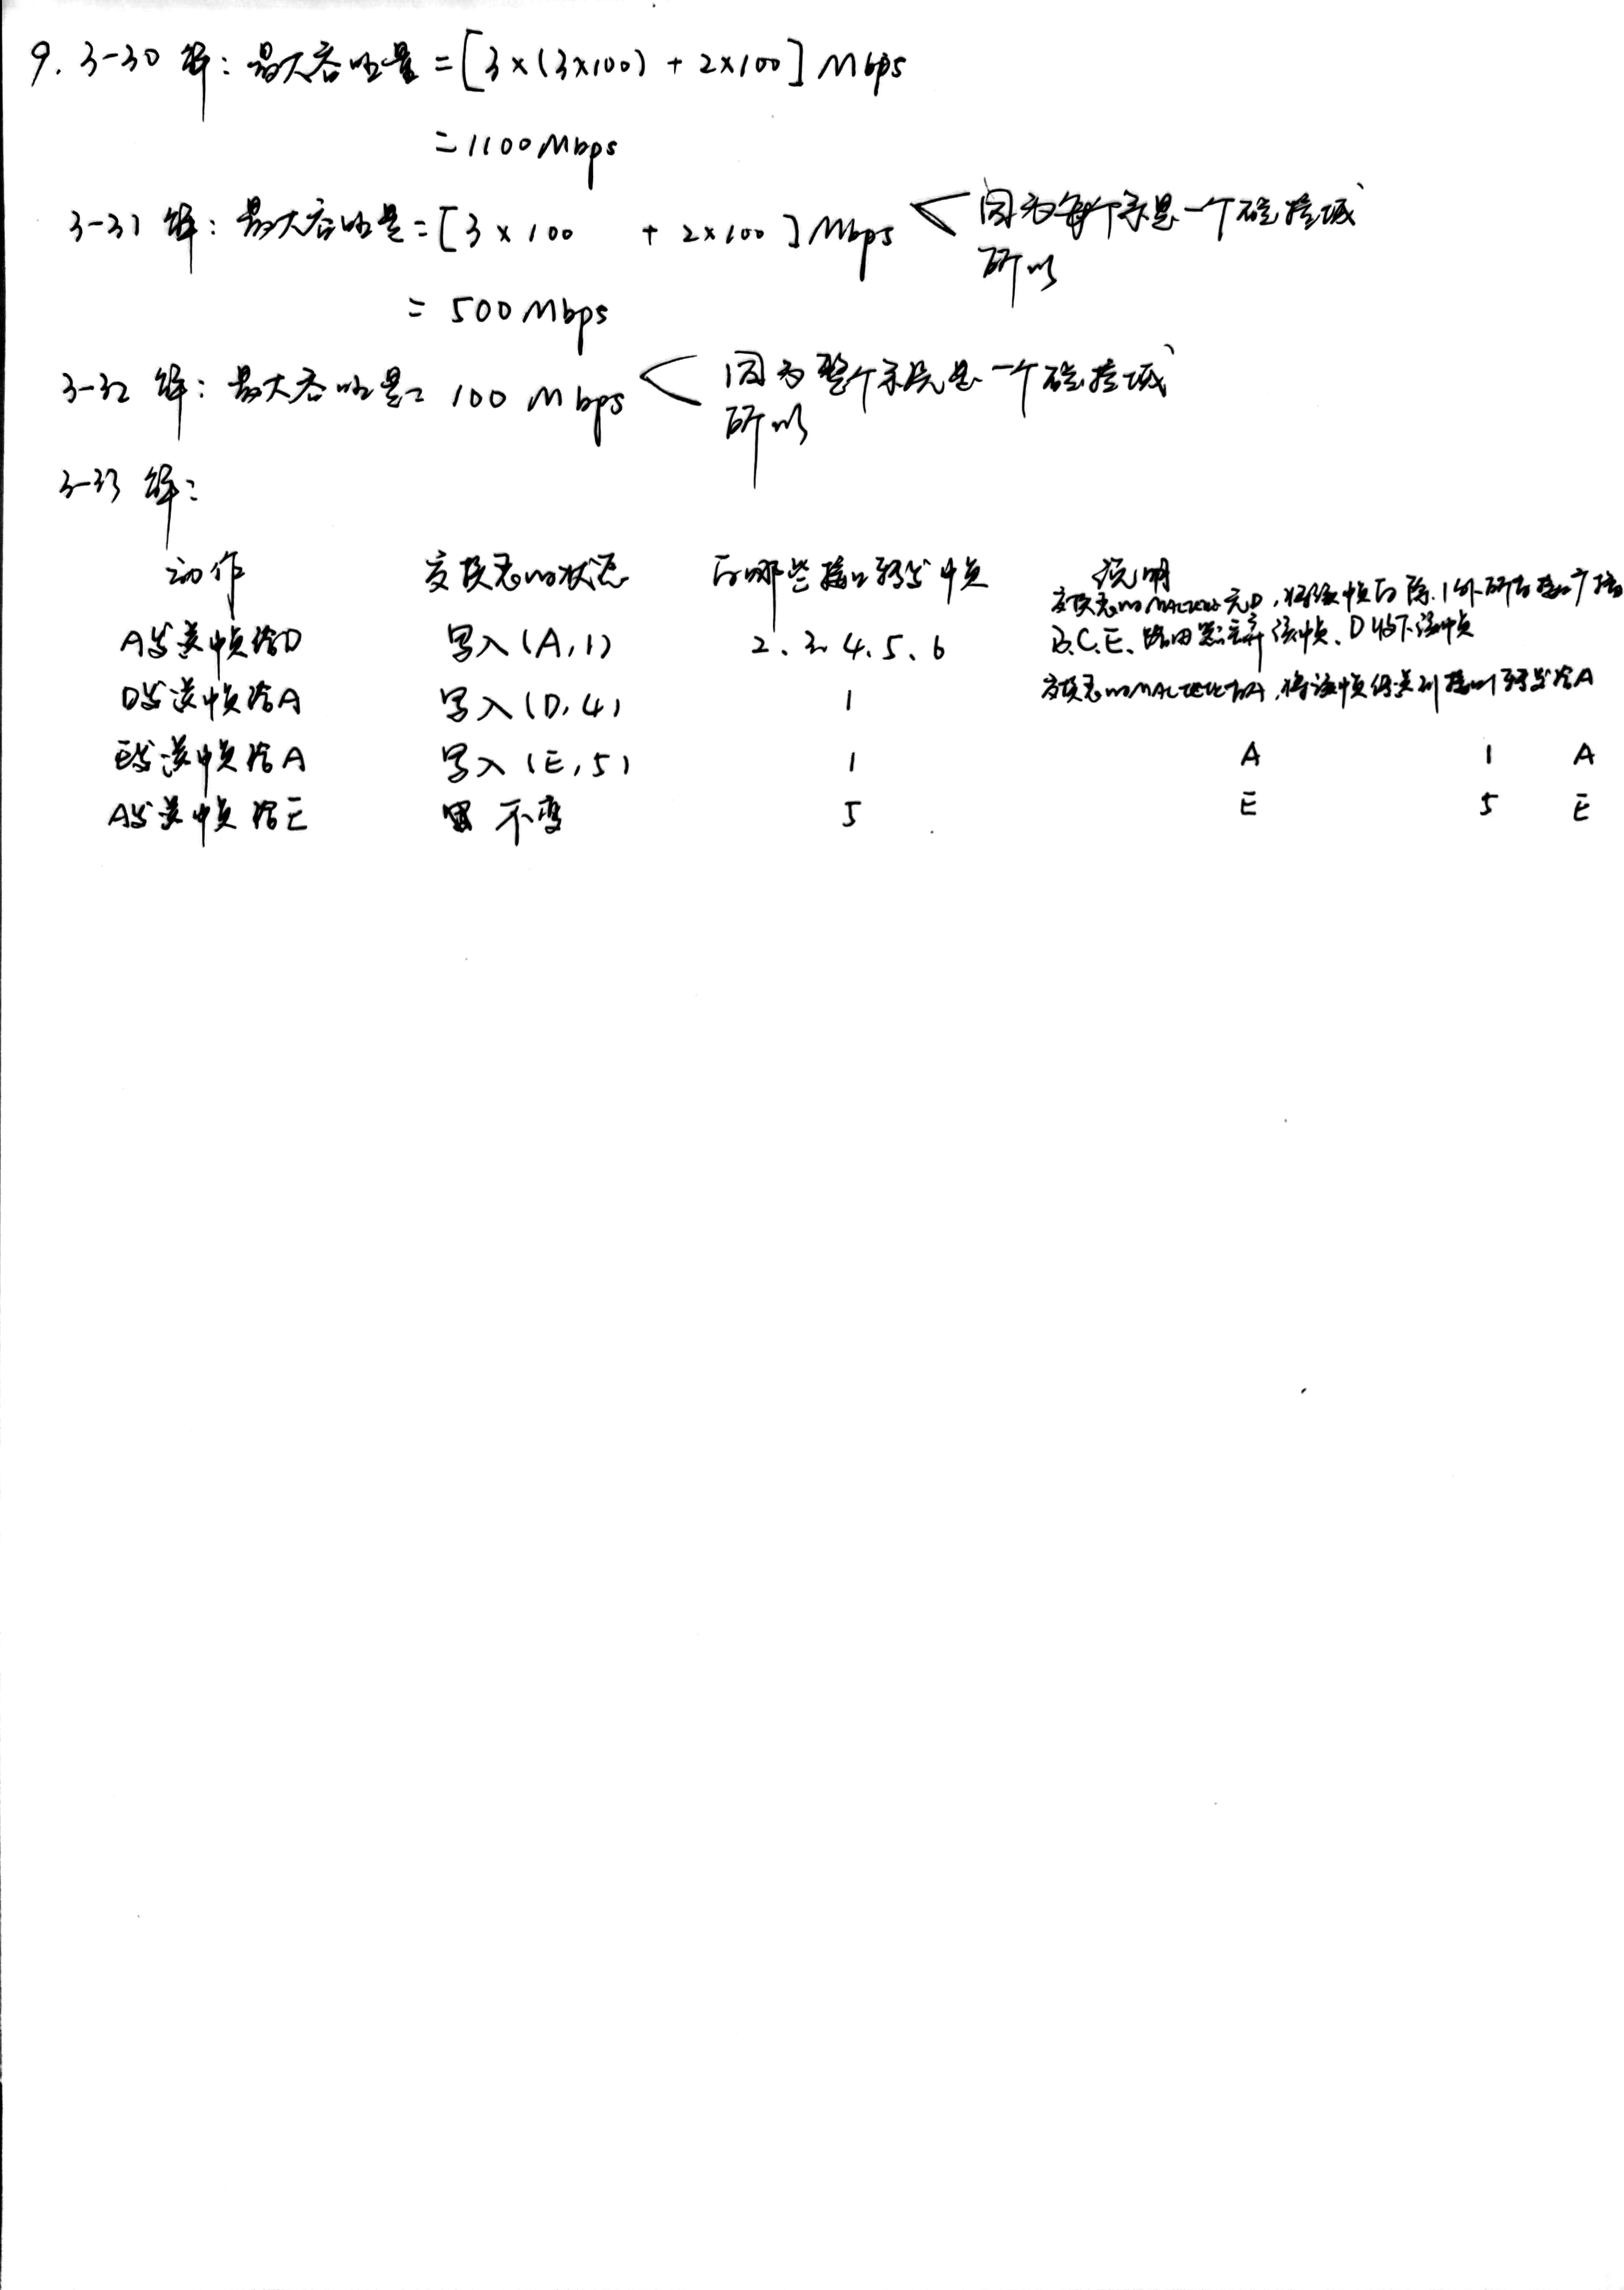 9. 3-30 解: 最大吞吐量 = [3×(3×100) + 2×100] Mbps
= 1100 Mbps
3-31 解: 最大吞吐量 = [3×100 + 2×100] Mbps < 因为每个系是一个碰撞域
所以
= 500 Mbps
3-32 解: 最大吞吐量 = 100 Mbps < 因为整个系统是一个碰撞域
所以
3-33 解:
动作 交换表的状态 向哪些接口转发帧 说明
交换表的MAC地址无D, 将该帧向除1外所有接口广播
A发送帧给D 写入(A,1) 2、3、4、5、6 B.C.E、路由器丢弃该帧、D收下该帧
D发送帧给A 写入(D,4) 1 交换表的MAC地址有A, 将该帧传送到接口1转发给A
E发送帧给A 写入(E,5) 1 A 1 A
A发送帧给E 不变 5 E 5 E